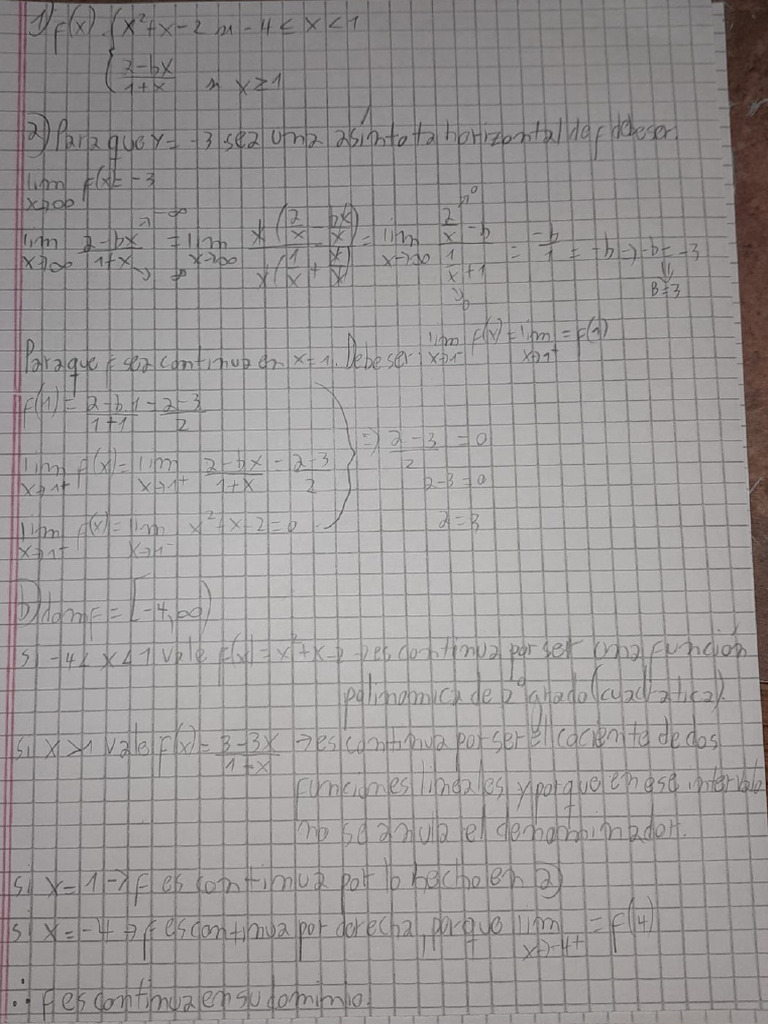 1) f(x) { x²+x-2 si -4 < x < 1
{ a-bx/1+x si x ≥ 1
a) Para que y = -3 sea una asíntota horizontal de f debe ser
lim x→∞ f(x) = -3
lim x→∞ a-bx/1+x = lim x→∞ x(a/x - bx/x)/x(1/x + x/x) = lim x→∞ a/x - b / 1/x + 1 = -b/1 = -b → -b = -3
B=3
Para que f sea continua en x=1. Debe ser: lim x→1- f(x) = lim x→1+ = f(1)
f(1) = a-b.1/1+1 = a-3/2
lim x→1+ f(x) = lim x→1+ a-bx/1+x = a-3/2 ⇒ a-3/2 = 0
a-3=0
lim x→1- f(x) = lim x→1- x²+x-2=0
a=3
b) dom f = [-4,∞)
si -4<x<1 vale f(x) = x²+x-2 → es continua por ser una función
polinomica de 2° grado (cuadratica).
si x>1 vale f(x) = 3-3x/1+x → es continua por ser el cociente de dos
funciones lineales y porque en ese intervalo
no se anula el denominador.
si x=1 → f es continua por lo hecho en a)
si x=-4 → f es continua por derecha, porque lim x→-4+ = f(4)
∴ f es continua en su dominio.